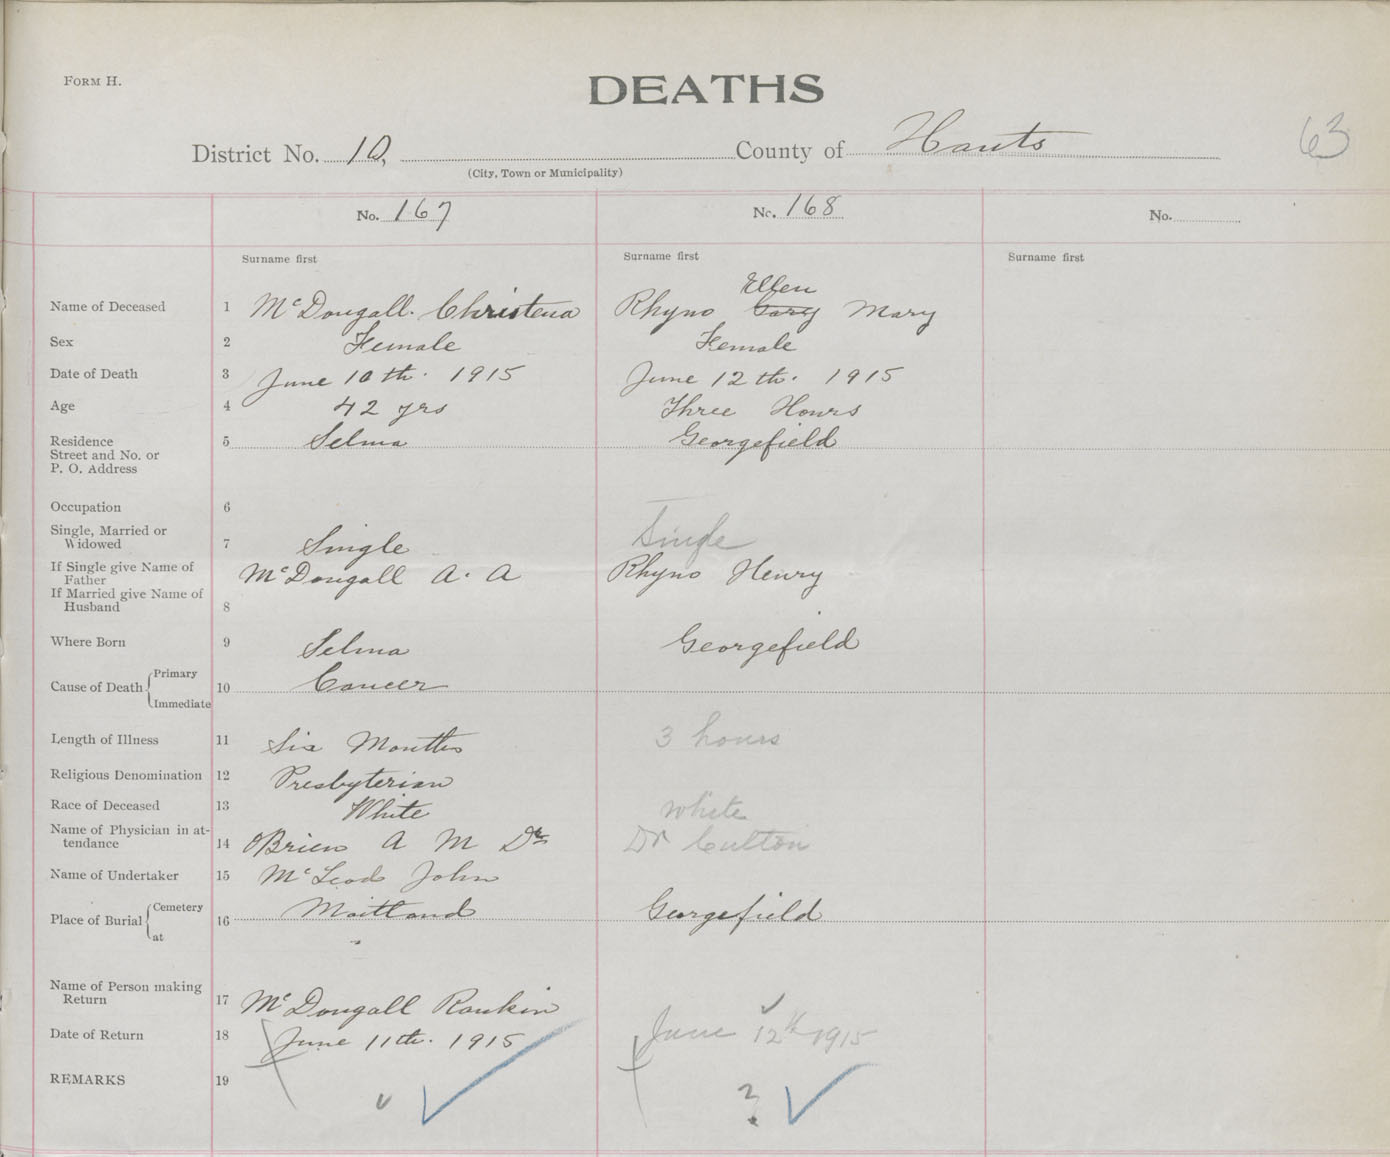 FORM H.
DEATHS
63
District No. 10, County of Hants
(City, Town or Municipality)
No. 167 No. 168 No.
Surname first Surname first Surname first
Ellen
Name of Deceased 1 McDougall. Christena Rhyno Gary Mary
Sex 2 Female Female
Date of Death 3 June 10th. 1915 June 12th. 1915
Age 4 42 yrs Three Hours
Residence 5 Selma Georgefield
Street and No. or
P. O. Address
Occupation 6
Single, Married or
Widowed 7 Single Single
If Single give Name of
Father McDougall A. A Rhyno Henry
If Married give Name of
Husband 8
Where Born 9 Selma Georgefield
Primary
Cause of Death 10 Cancer
Immediate
Length of Illness 11 Six Months 3 hours
Religious Denomination 12 Presbyterian
Race of Deceased 13 White white
Name of Physician in at-
tendance 14 OBrien A M Dr Dr Culton
Name of Undertaker 15 McLeod John
Cemetery
Place of Burial 16 Maitland Georgefield
at
Name of Person making
Return 17 McDougall Rankin
Date of Return 18 June 11th. 1915 June 12th 1915
REMARKS 19 ?